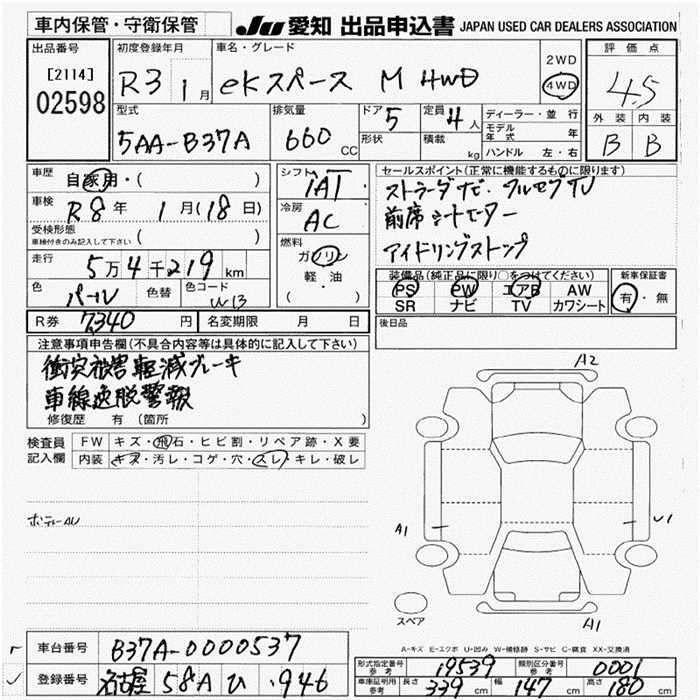 車内保管・守衛保管 JU 愛知 出品申込書 JAPAN USED CAR DEALERS ASSOCIATION
出品番号
[2114]
02598
初度登録年月
R3 1月
車名・グレード
eKスペース M 4WD
2WD
4WD
評価点
4.5
外装 内装
B B
型式
5AA-B37A
排気量
660 CC
ドア 5
形状
定員 4人
積載 kg
ディーラー・並行
モデル年式 年
ハンドル 左・右
車歴 自家用・( )
車検 R8年 1月(18日)
受検形態
車検付きのみ記入して下さい ( )
走行 5万4千219km
色 パール 色替 色コード W13
シフト IAT
冷房 AC
燃料
ガソリン
軽・油
( ・ )
セールスポイント(正常に機能するものに限ります)
ストラーダナビ・フルセグTV
前席シートヒーター
アイドリングストップ
装備品(純正品に限り○をつけてください)
PS PW エアB AW
SR ナビ TV カワシート
新車保証書
有・無
R券 7,340円 名変期限 月 日
後日品
注意事項申告欄(不具合内容等は具体的に記入して下さい)
衝突被害軽減ブレーキ
車線逸脱警報
修復歴 有(箇所 )
検査員記入欄
FW キズ・飛石・ヒビ割・リペア跡・X要
内装 キズ・汚レ・コゲ・穴・スレ・キレ・破レ
A2
A1
U1
A1
スペア
A-キズ E-エクボ U-凹み W-補修跡 S-サビ C-腐食 XX-交換済
車台番号 B37A-0000537
登録番号 名古屋 58A ひ ・946
形式指定番号 参考 19539 類別区分番号 参考 0001
車庫証明用 参考 長さ 339cm 幅 147cm 高さ 180cm